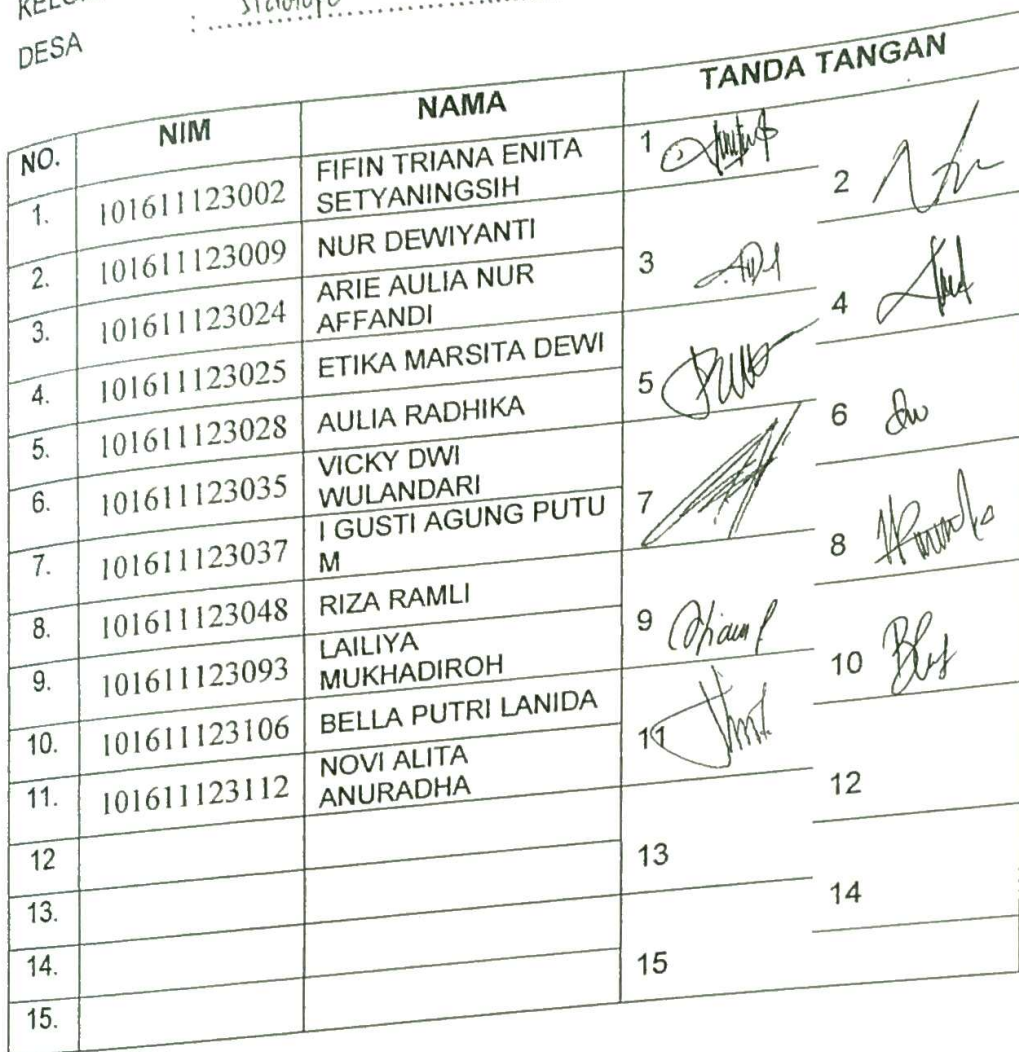 DESA :
NO. NIM NAMA TANDA TANGAN
1. 101611123002 FIFIN TRIANA ENITA
SETYANINGSIH
2. 101611123009 NUR DEWIYANTI
3. 101611123024 ARIE AULIA NUR
AFFANDI
4. 101611123025 ETIKA MARSITA DEWI
5. 101611123028 AULIA RADHIKA
6. 101611123035 VICKY DWI
WULANDARI
7. 101611123037 I GUSTI AGUNG PUTU
M
8. 101611123048 RIZA RAMLI
9. 101611123093 LAILIYA
MUKHADIROH
10. 101611123106 BELLA PUTRI LANIDA
11. 101611123112 NOVI ALITA
ANURADHA
12
13.
14.
15.
1
2
3
4
5
6
7
8
9
10
11
12
13
14
15